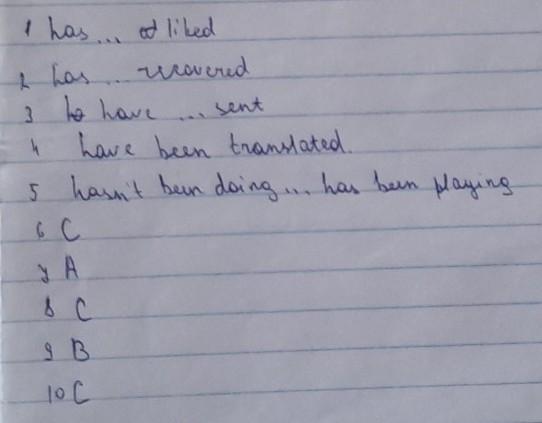 1 has... liked
2 has ... recovered
3 have ... sent
4 have been translated.
5 hasn't been doing... has been playing
6 C
7 A
8 C
9 B
10 C